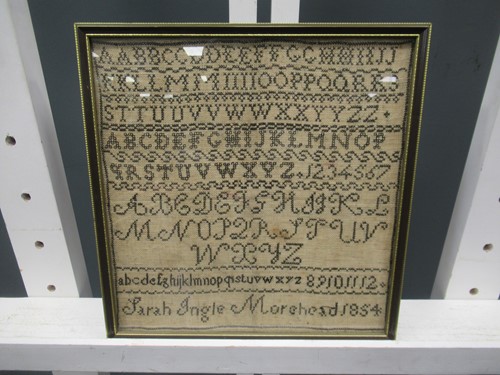 AABBCCDDEEFFGGHHIIJJ
KKLLMMNNOOPPQQRRS
STTUUVVWWXXYYZZ
ABCDEFGHIJKLMNOP
QRSTUVWXYZ.1234567
ABCDEFGHIJKL
MNOPQRSTUV
WXYZ
abcdefghijklmnopqrstuvwxyz 89101112
Sarah Ingle Morehead 1854